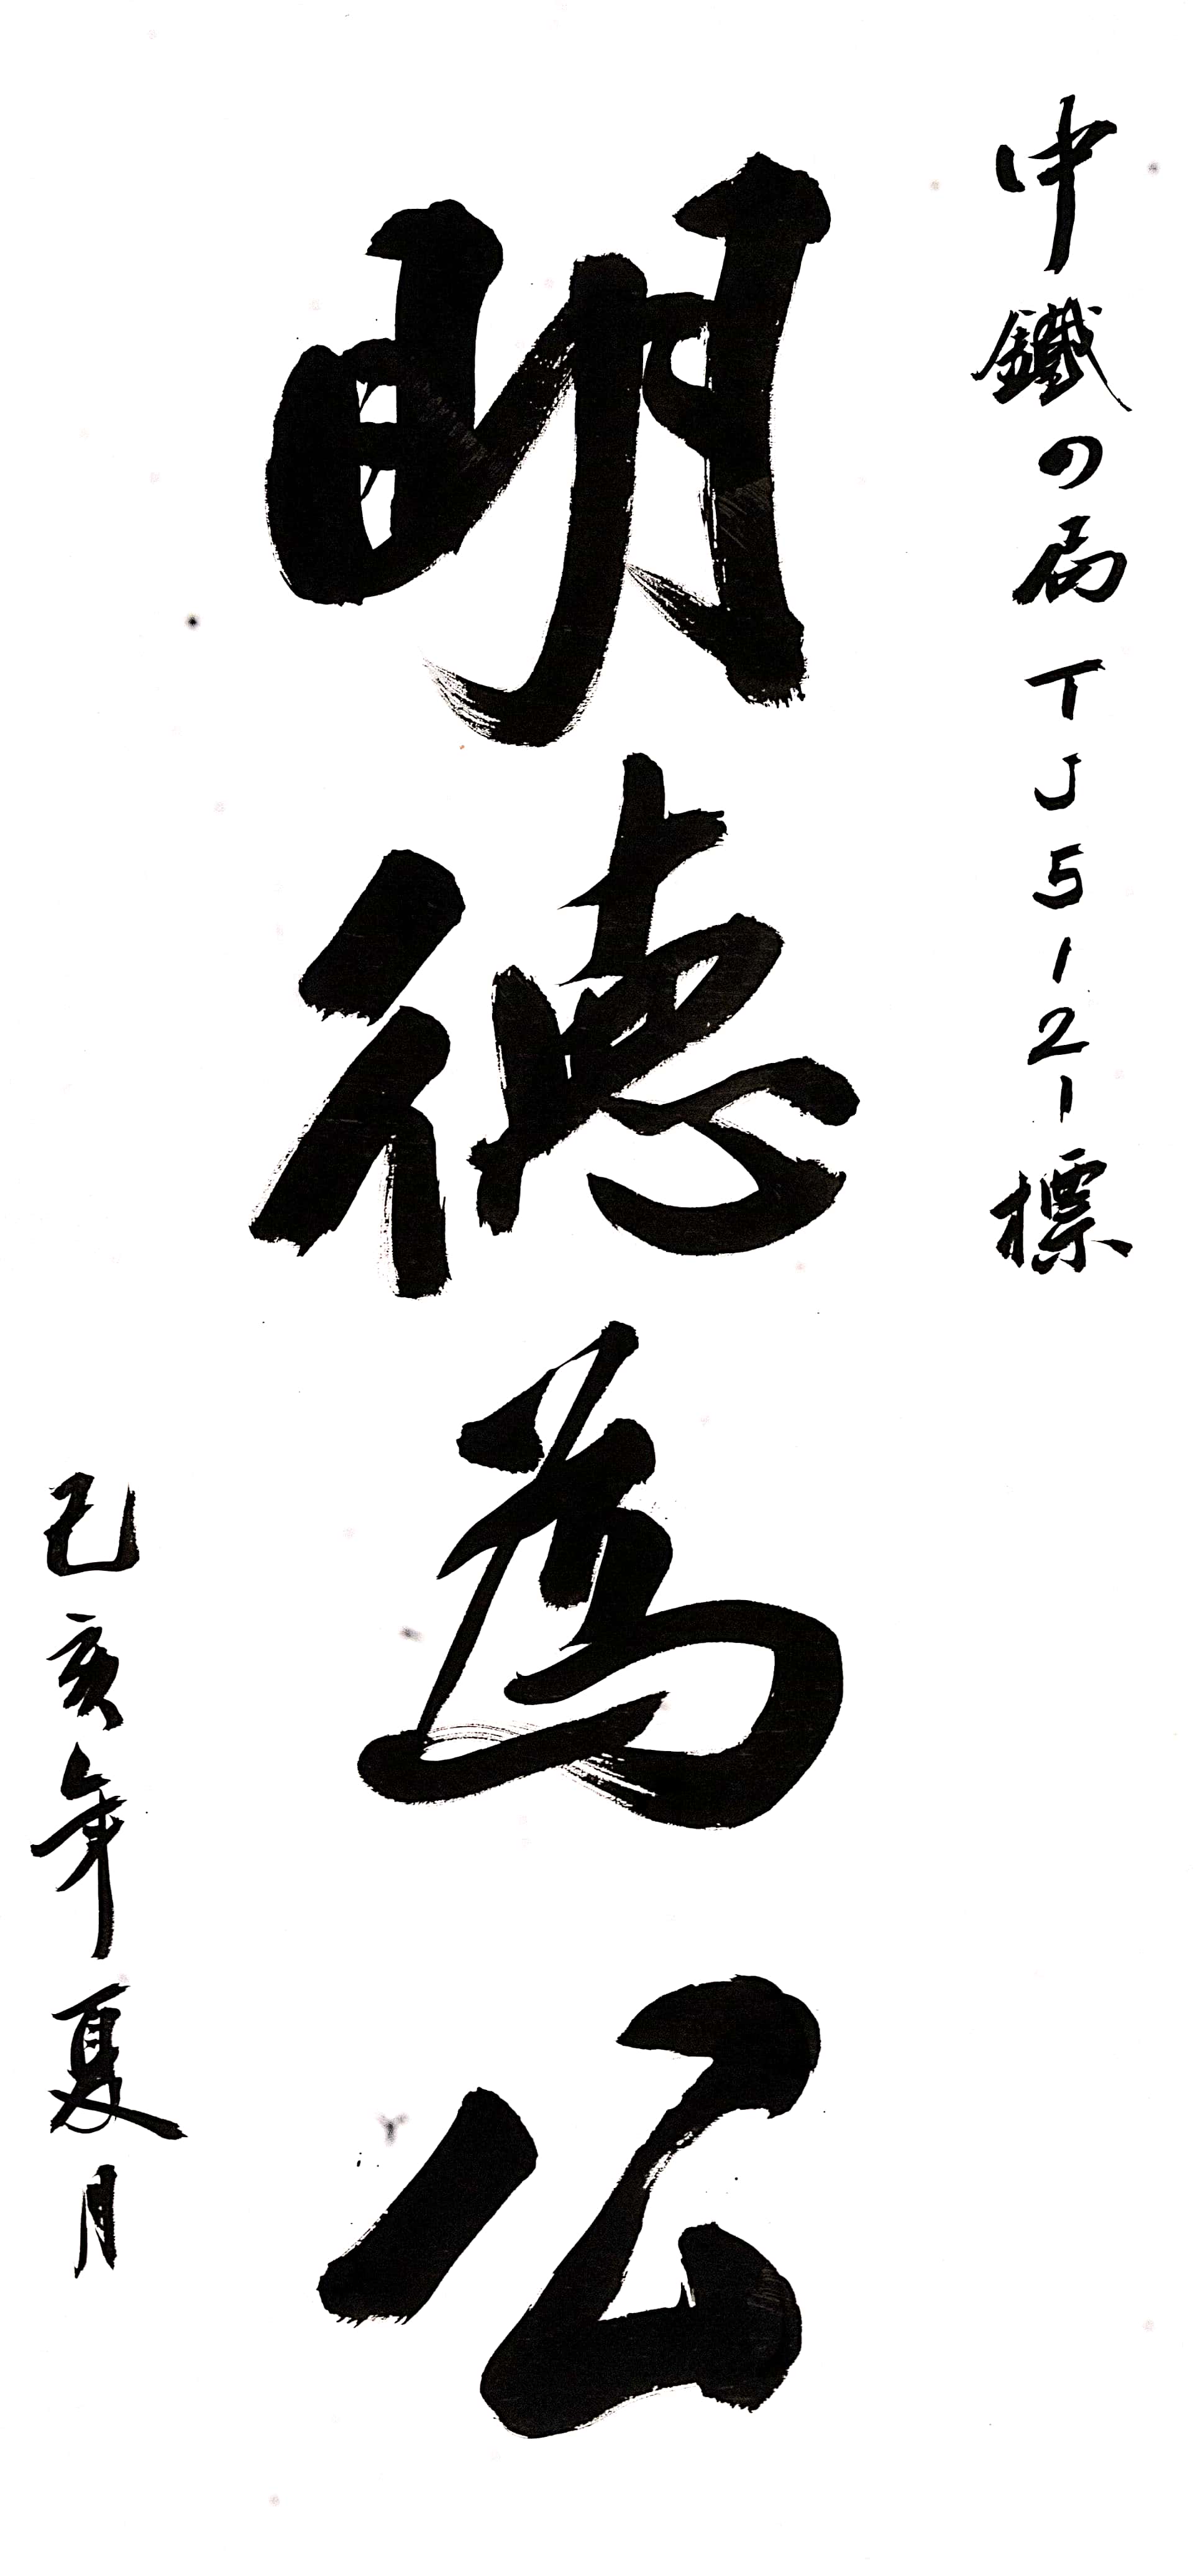 中鐵四局TJ5121標
明德為公
己亥年夏月